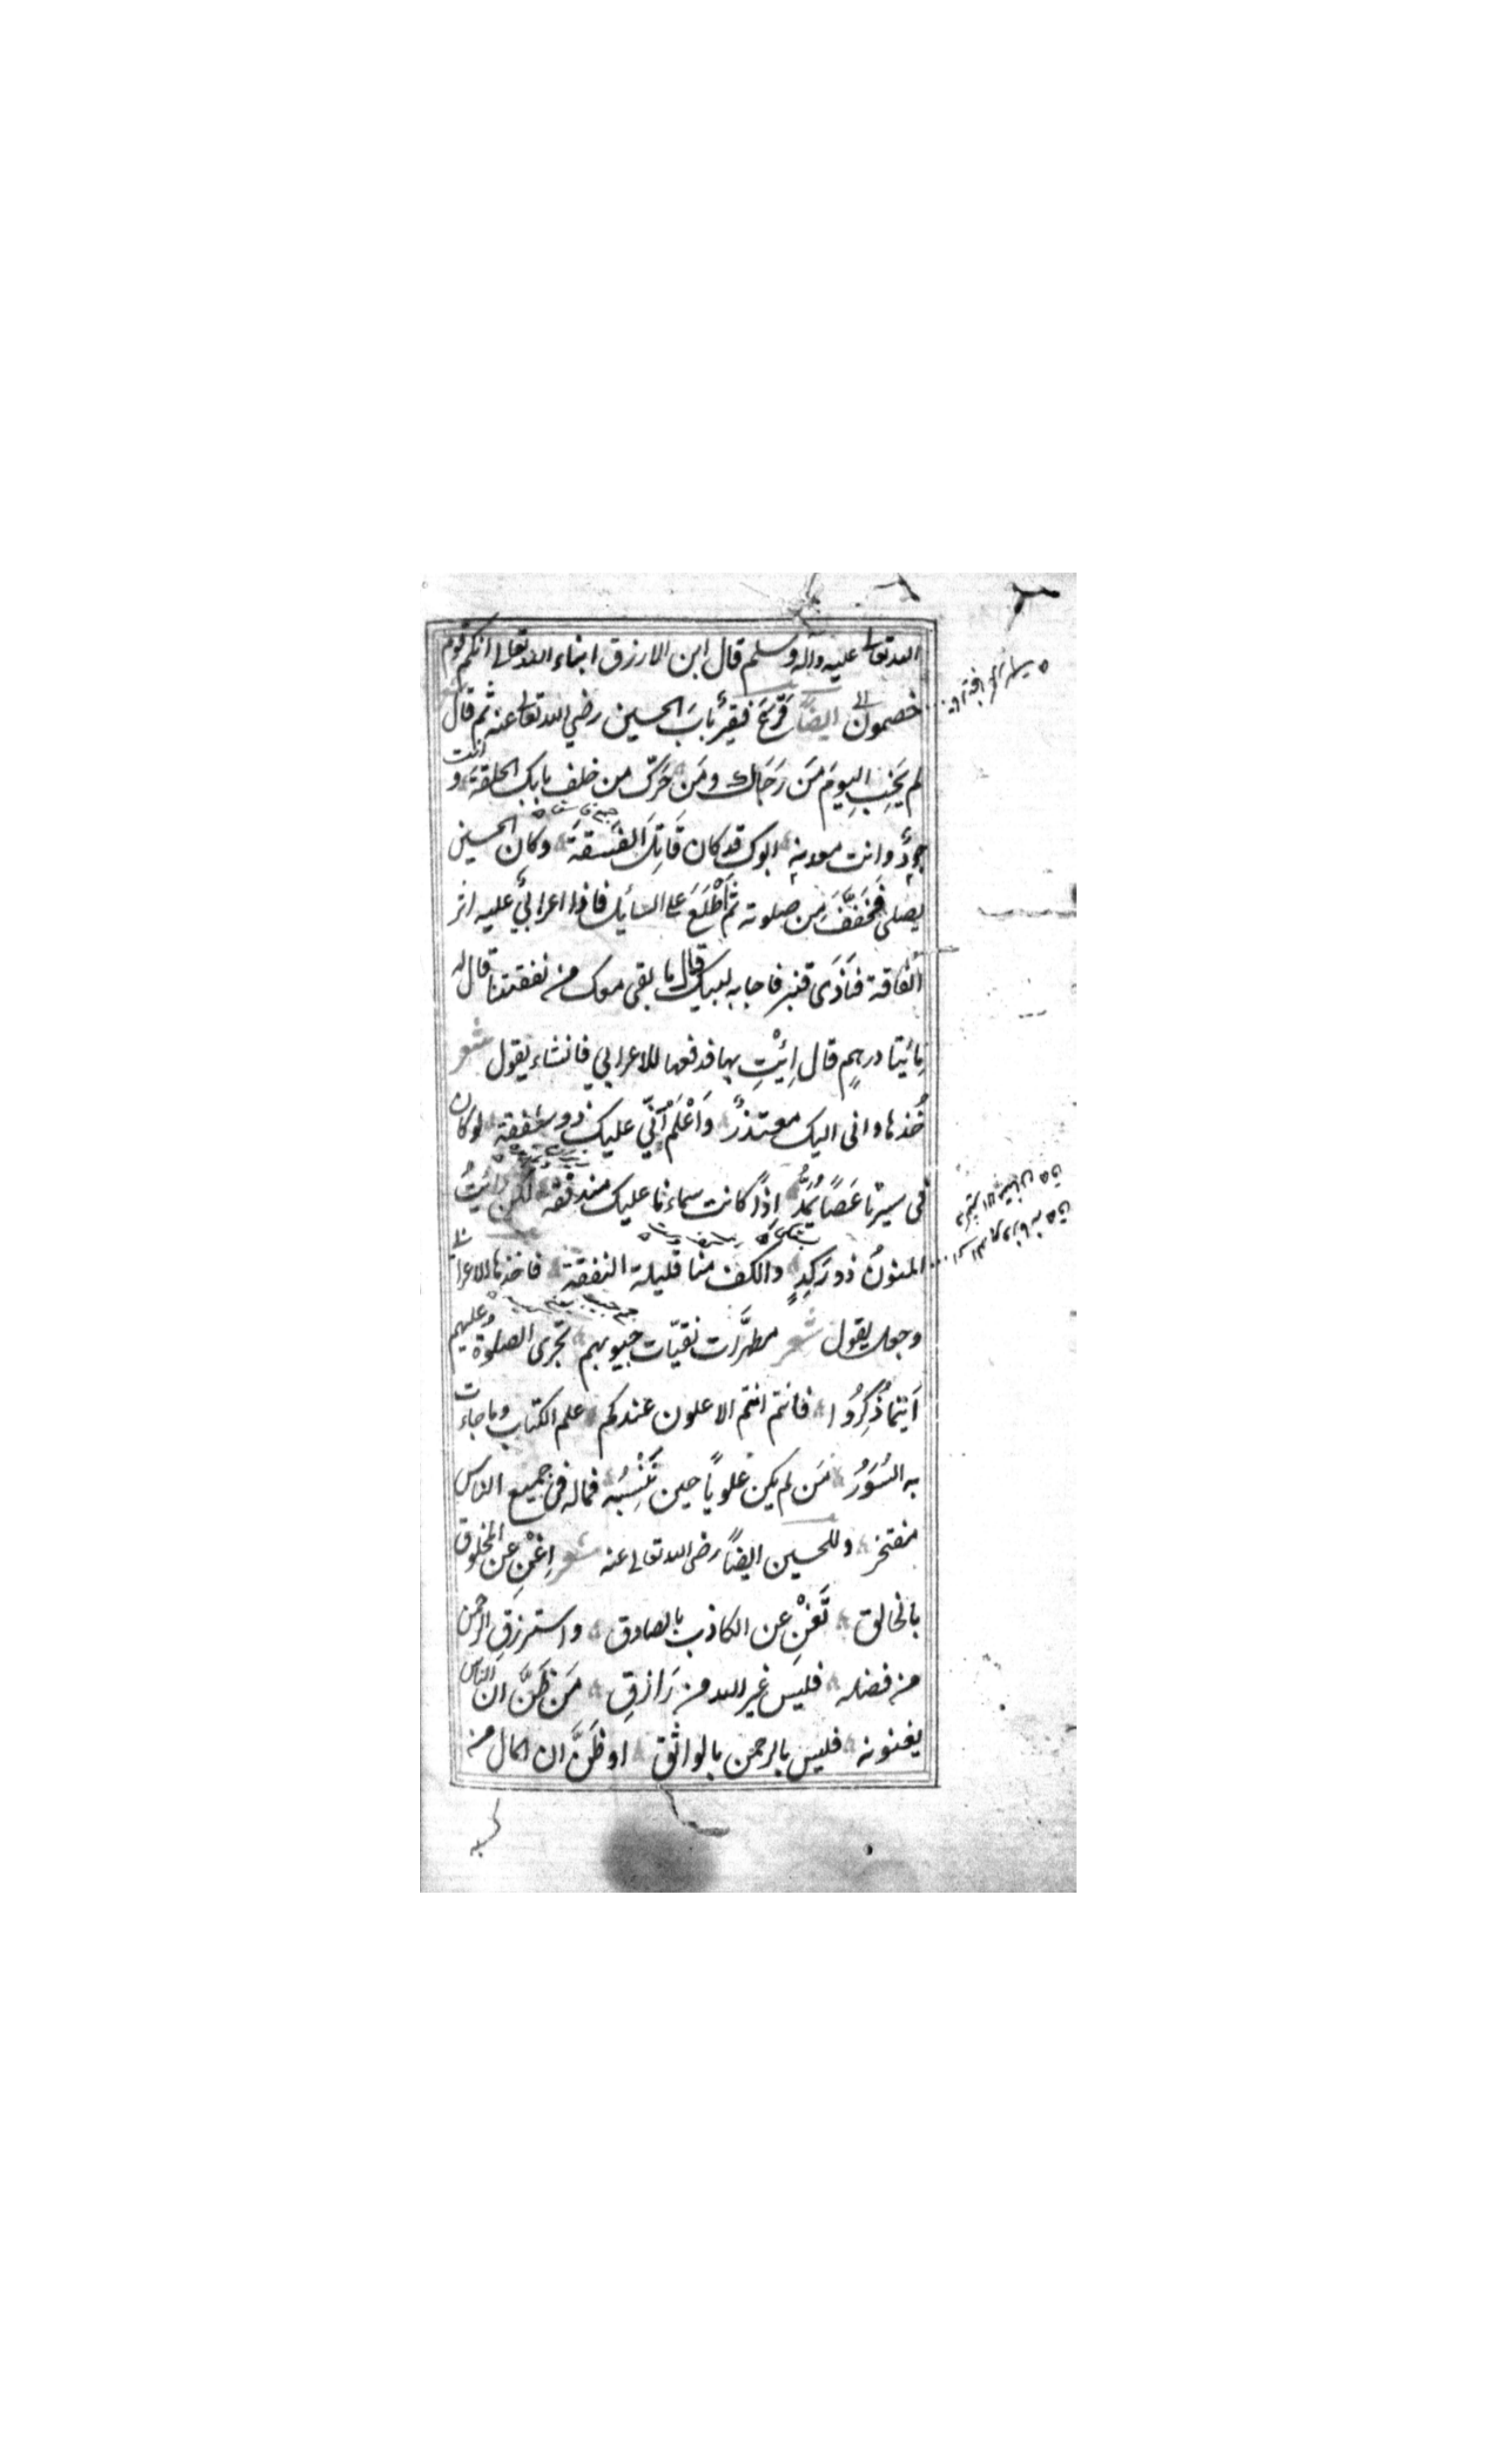 الله تعالى عليه وآله وسلم قال ابن الارزق انباء الله تعالى انكم قوم
خصمون ايضًا قرَعَ فقيرٌ بابَ الحسين رضي الله تعالى عنه ثم قال
لم يَخِبِ اليومَ مَن رَجَاك ومَن حَرّكَ من خلف بابك الحلقةَ و انت
جوادٌ وانت معدنه ابوك قد كان قَاتِلَ الفَسَقَةَ وكان الحسين
يصلى فخَفَّفَ مِن صلوته ثم اَطْلَعَ على السائل فاذا اعرابيٌ عليه اثر
الفاقة فنَادَى قنبر فاجابه لبيك قال ما بقى معك من نفقتنا قال له
مِائيتا درهمٍ قال اِئيْتِ بها فدفعها للاعرابي فانشاء يقول شعر
خُذها وانى اليك معتذرٌ وَاَعْلَمْ اَنِّي عليك ذو شفقة لو كان
فى سيرنا عَصًا تُمَدُّ اِذًا كانت سماءنا عليك مندفقة لكن رائيتُ
المنونُ ذو نكدٍ والكف منا قليلة النفقة فاخذها الاعرابى
وجعل يقول شعر مطهَّرات نقيّات جيوبهم تجرى الصلوة عليهم
اَيْنما ذُكِرُوا فانتم انتم الاعلون عندكم علم الكتاب وما جاءت
به السُوَرُ مَن لم يكن علويًا حين تَنْسِبُه فماله فى جميع الناس
مفتخر وللحسين ايضًا رضى الله تعالى عنه شعر اِغْنِ عن المخلوق
بالخالق تَغْنِ عن الكاذب بالصادق واسترزقِ الرحمن
من فضله فليس غير الله من رَازقِ مَن ظَنَّ ان الناس
يغنونه فليس بالرحمن بالواثق او ظَنَّ ان المال من
كسبه